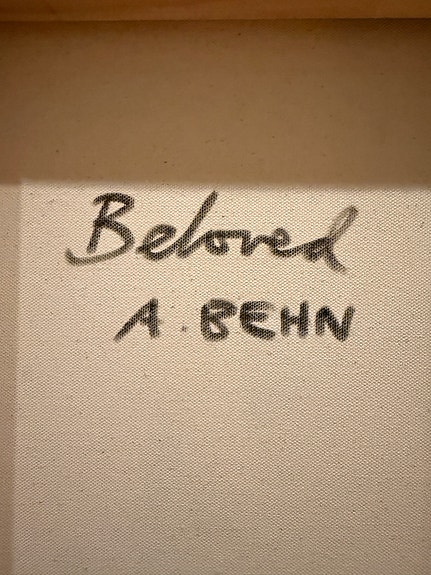 Beloved
A. BEHN